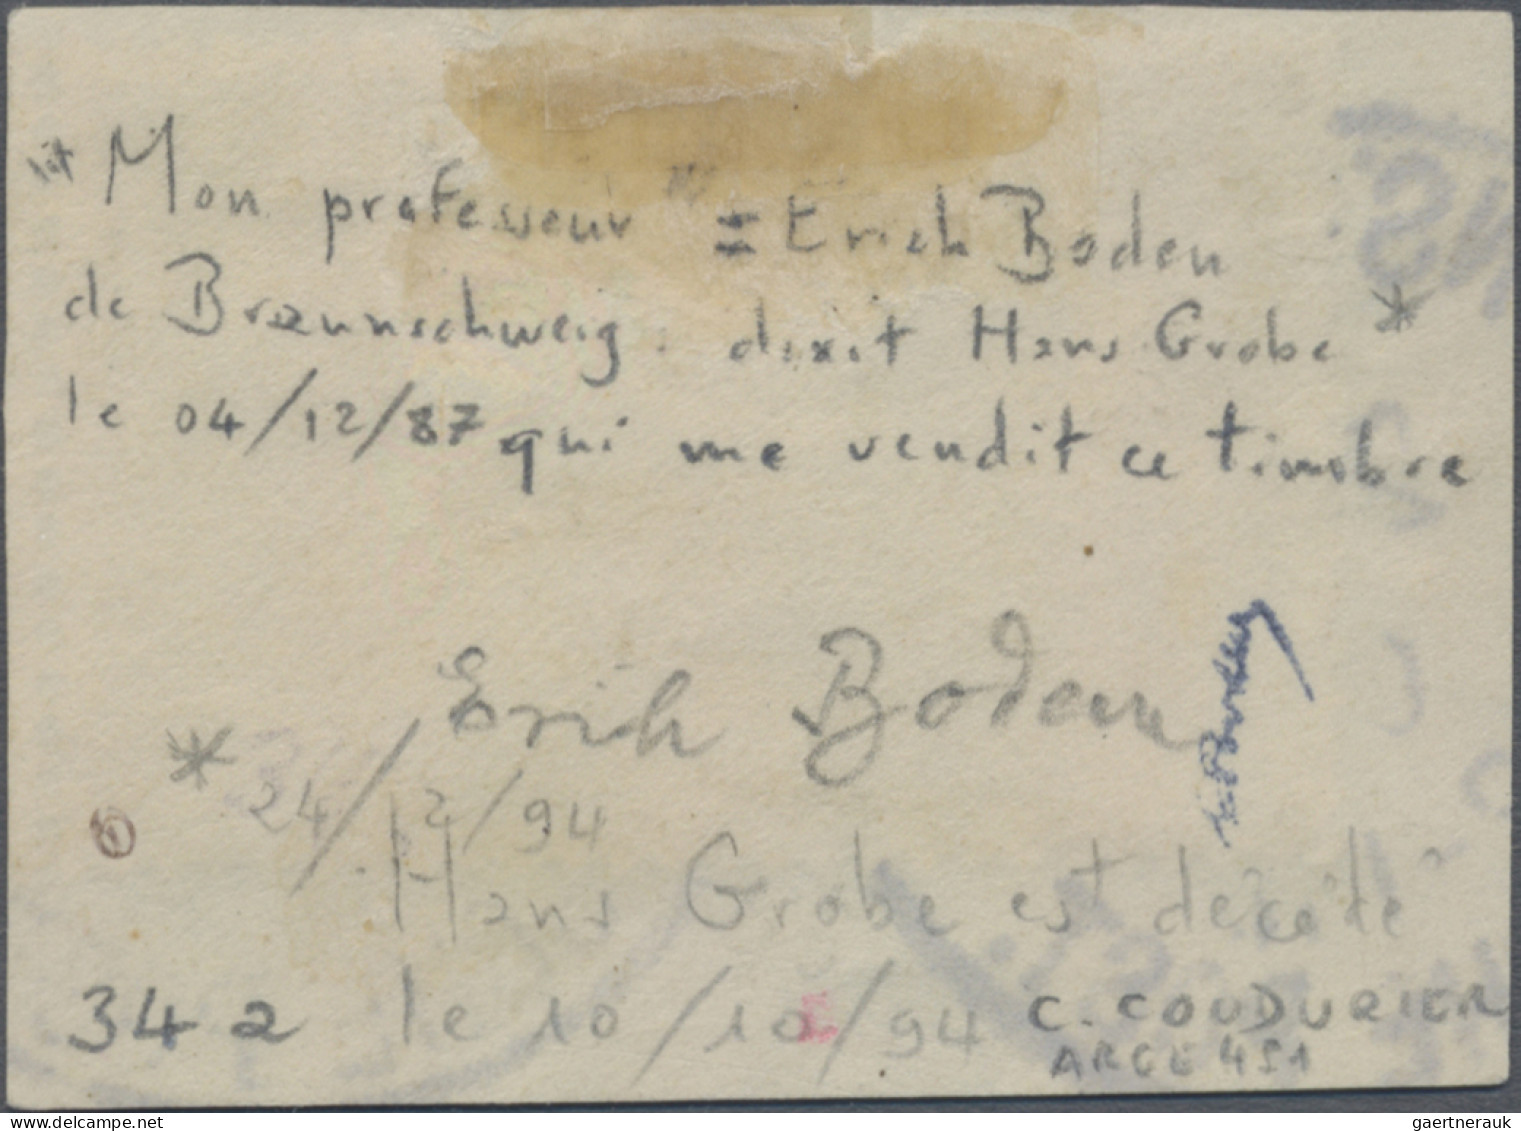 * Mon professeur " = Erich Boden
de Braunschweig. dixit Hans Grobe *
le 04/12/87 qui me vendit ce timbre
Erich Boden
* 24/12/94
Hans Grobe est décédé
34 a le 10/10/94 C. COUDURIER
ARGE 451
gaertnerauk